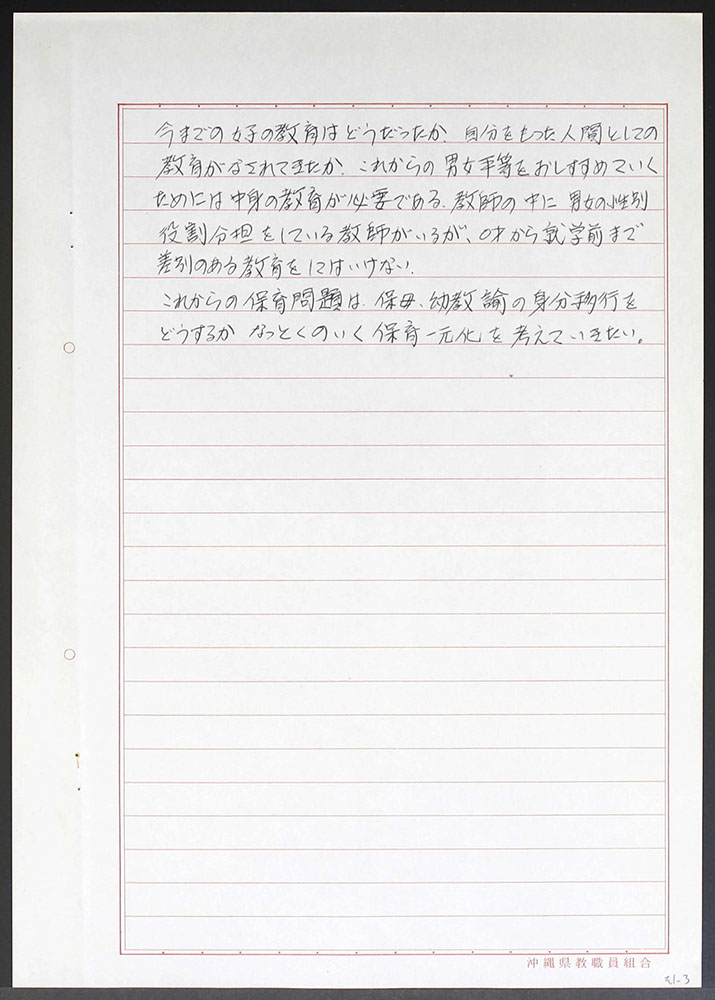 今までの女子の教育はどうだったか. 自分をもった人間としての
教育がなされてきたか. これからの男女平等をおしすすめていく
ためには中身の教育が必要である. 教師の中に男女の性別
役割分担をしている教師がいるが、0才から就学前まで
差別のある教育をしてはいけない.
これからの保育問題は、保母、幼教諭の身分移行を
どうするか なっとくのいく保育一元化を考えていきたい。
沖縄県教職員組合